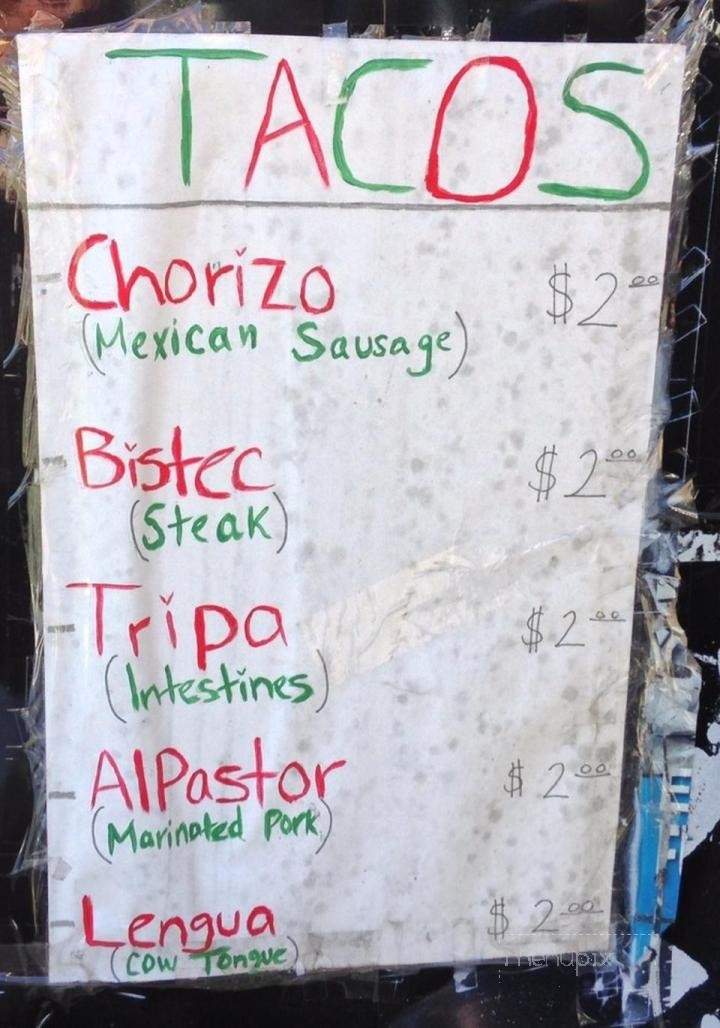 TACOS
Chorizo $2.00
(Mexican Sausage)
Bistec $2.00
(Steak)
Tripa $2.00
(Intestines)
AlPastor $2.00
(Marinated Pork)
Lengua $2.00
(Cow Tongue)
menupix